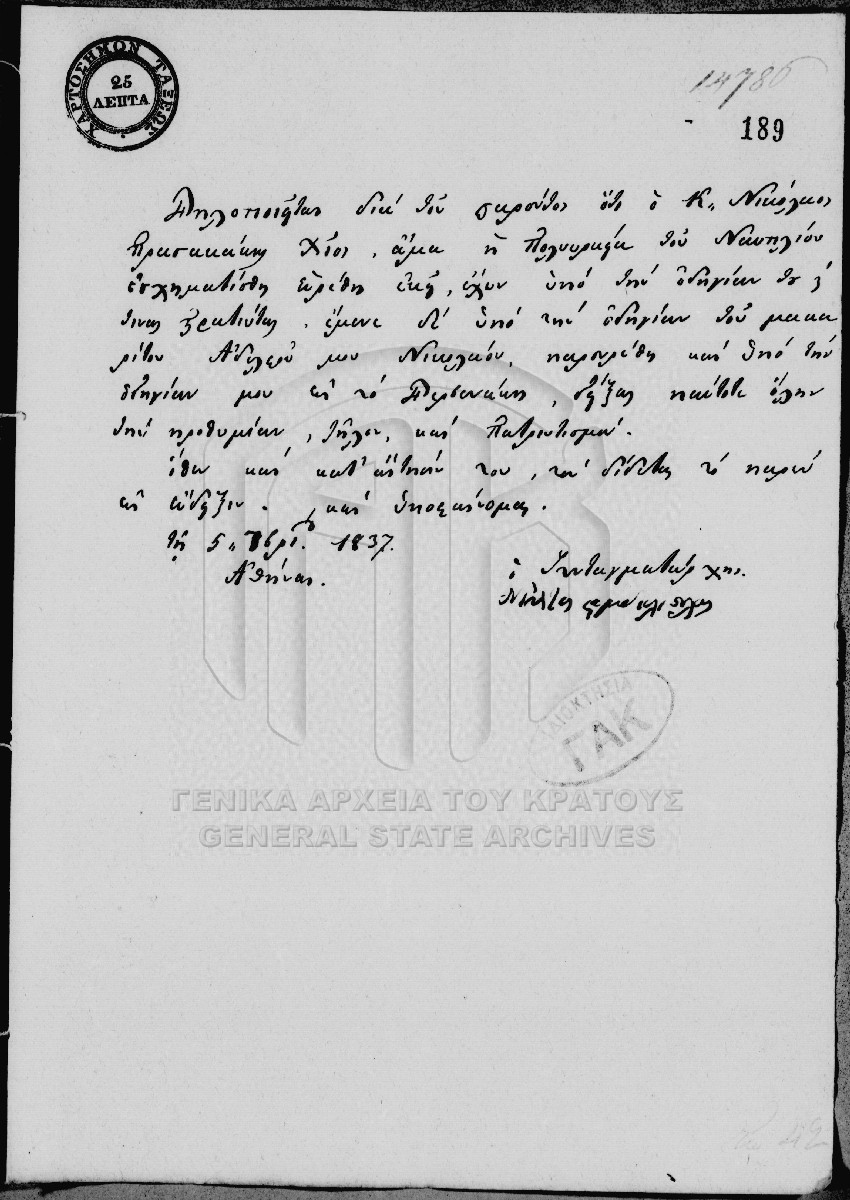 ΧΑΡΤΟΣΗΜΟΝ ΤΑΞΕΩΣ
25
ΛΕΠΤΑ
14786
189
διά τοῦ παρόντος ὅτι ὁ Κ,, Νικόλαος
Χῖος, ἅμα ἡ Πολιορκία τοῦ Ναυπλίου
ἐσχηματίσθη εὑρέθη ἐκεῖ, ἔχων ὑπό τήν ὁδηγίαν του
τινας στρατιώτας. ἔμεινε δέ ὑπό τήν ὁδηγίαν τοῦ μακα
ρίτου Ἀδελφοῦ μου Νικολάου, παρευρέθη καί ὑπό τήν
ὁδηγίαν μου εἰς τό, δείξας πάντοτε ὅλην
τήν προθυμίαν, ζῆλον, καί πατριωτισμόν.
ὅθεν καί κατ' αἴτησίν του, τοῦ δίδεται τό παρόν
εἰς ἔνδειξιν. καί ὑποσημειοῦμαι.
τῇ 5,, 1837.
Ἀθῆναι.
ὁ Συνταγματάρχης.
ΙΔΙΟΚΤΗΣΙΑ
ΓΑΚ
ΓΕΝΙΚΑ ΑΡΧΕΙΑ ΤΟΥ ΚΡΑΤΟΥΣ
GENERAL STATE ARCHIVES